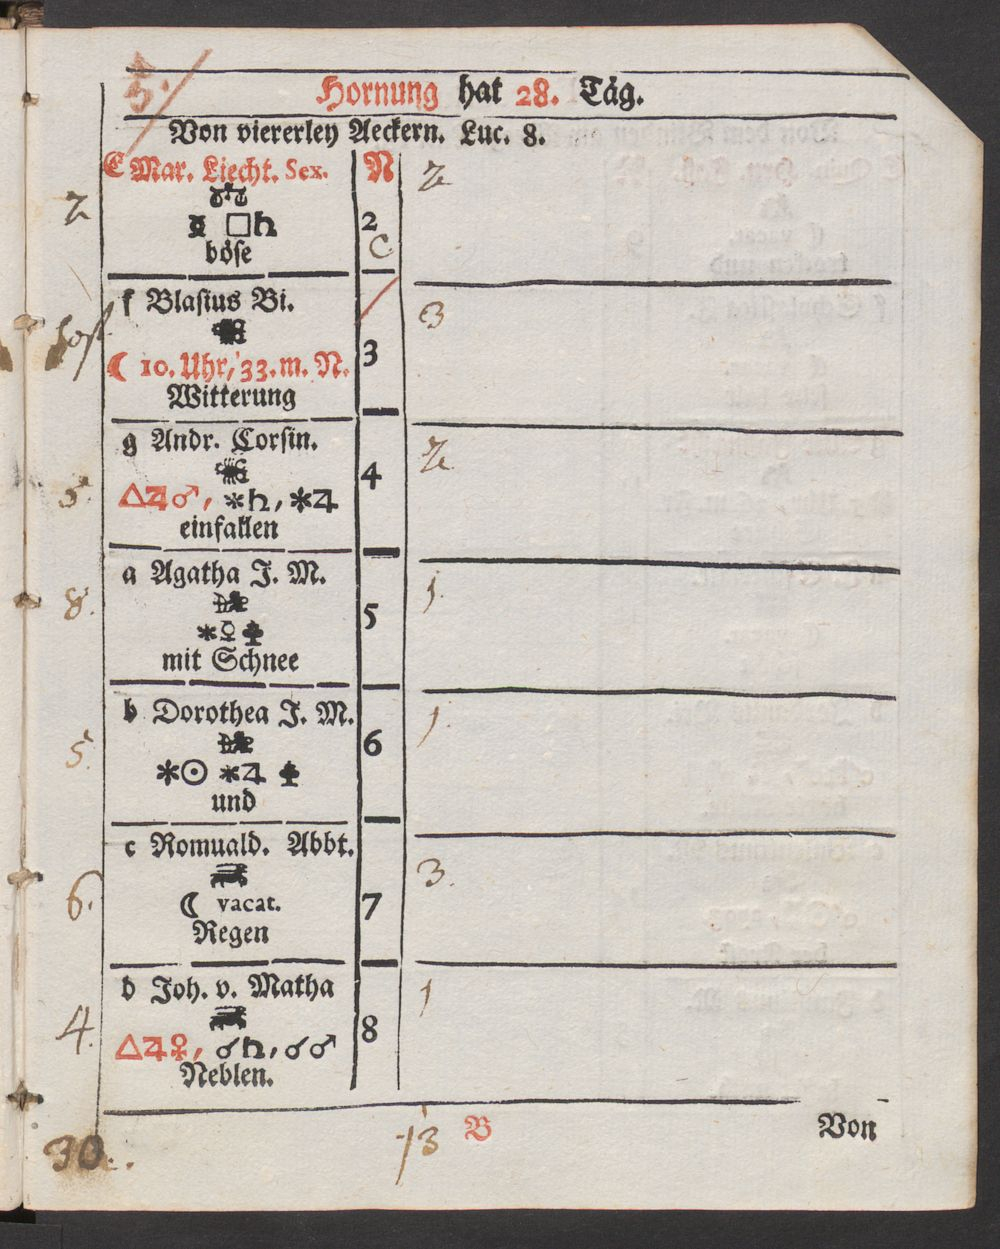 5.
Hornung hat 28. Täg.
Von viererley Aeckern. Luc. 8.
E Mar. Liecht. Sex. N
2 □♄ 2 2
böse C
f Blasius Bi. 3
☾ 10. Uhr, 33. m. N. 3
Witterung
g Andr. Corsin. 4 2
5 △♃♂, ✶♄, ✶♃
einfallen
a Agatha J. M. 1
8. ✶☿ 5
mit Schnee
b Dorothea J. M. 1
5. ✶☉ ✶♃ 6
und
c Romuald. Abbt. 3.
6. ☾ vacat. 7
Regen
d Joh. v. Matha 1
4. △♃♀, ☌♄, ☌♂ 8
Neblen.
30. 13 B Von